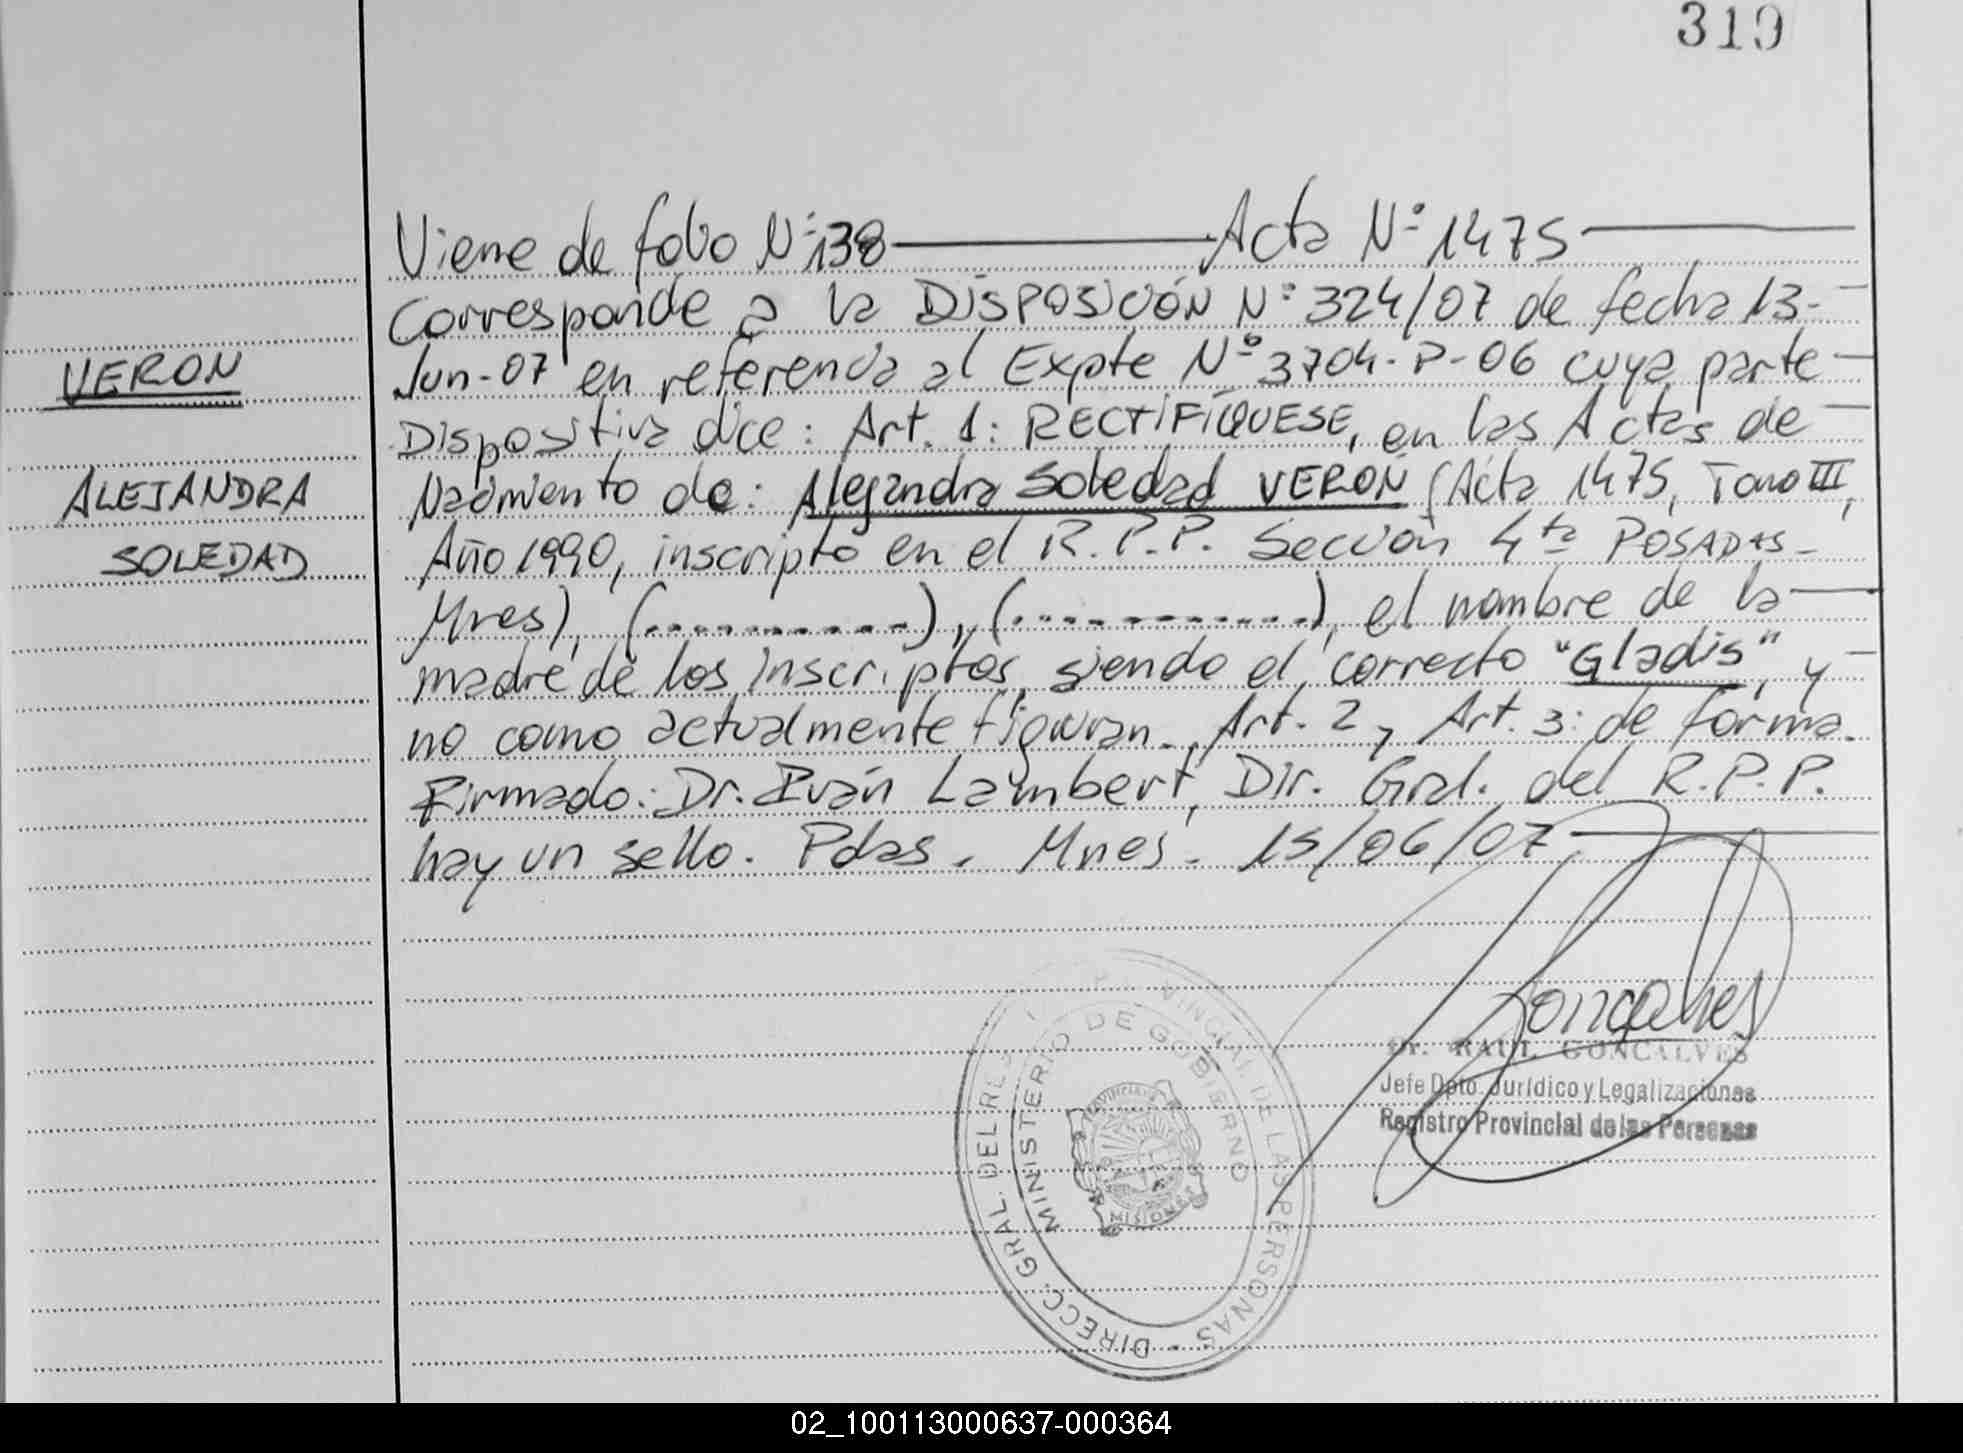 319
Viene de folio Nº 138 Acta Nº 1475
Corresponde a la DISPOSICIÓN Nº 324/07 de fecha 13-
VERON
Jun-07 en referencia al Expte Nº 3704-P-06 cuya parte
Dispositiva dice: Art. 1: RECTIFÍQUESE, en las Actas de
ALEJANDRA
Nacimiento de: Alejandra Soledad VERON (Acta 1475, Tomo III,
SOLEDAD
Año 1990, inscripto en el R.P.P. Sección 4ta POSADAS-
Mnes), (...........), (............), el nombre de la
madre de los inscriptos, siendo el correcto "Gladis", y
no como actualmente figuran. Art. 2, Art. 3: de forma.
Firmado: Dr. Iván Lambert, Dir. Gral. del R.P.P.
hay un sello. Pdas. Mnes. 15/06/07
Goncalves
Dr. RAUL GONCALVES
Jefe Dpto. Jurídico y Legalizaciones
Registro Provincial de las Personas
DIRECC. GRAL. DEL REG. PROVINCIAL DE LAS PERSONAS
MINISTERIO DE GOBIERNO
MISIONES
02_100113000637-000364